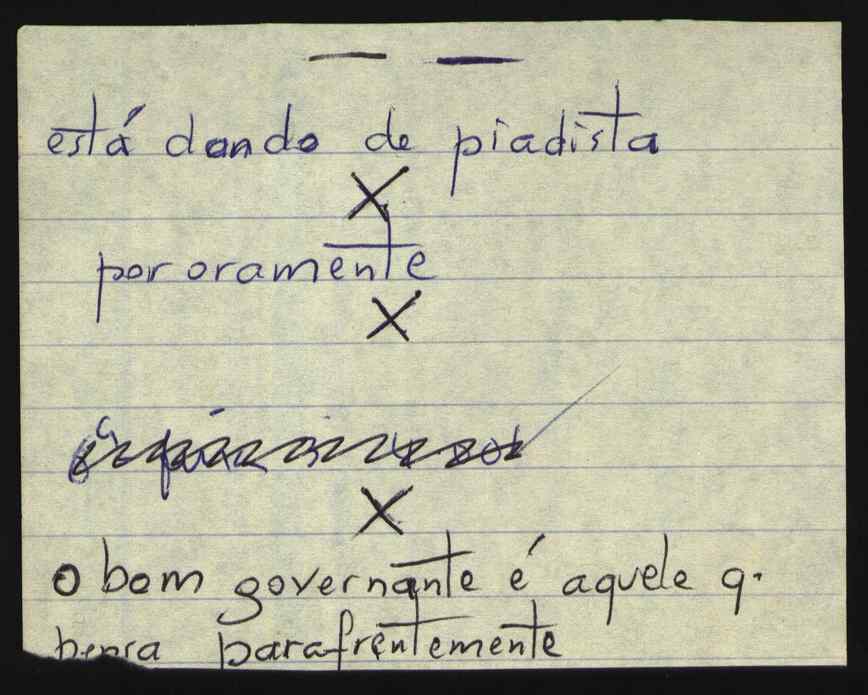 está dando de piadista
X
por oramente
X
X
o bom governante é aquele q.
pensa parafrentemente